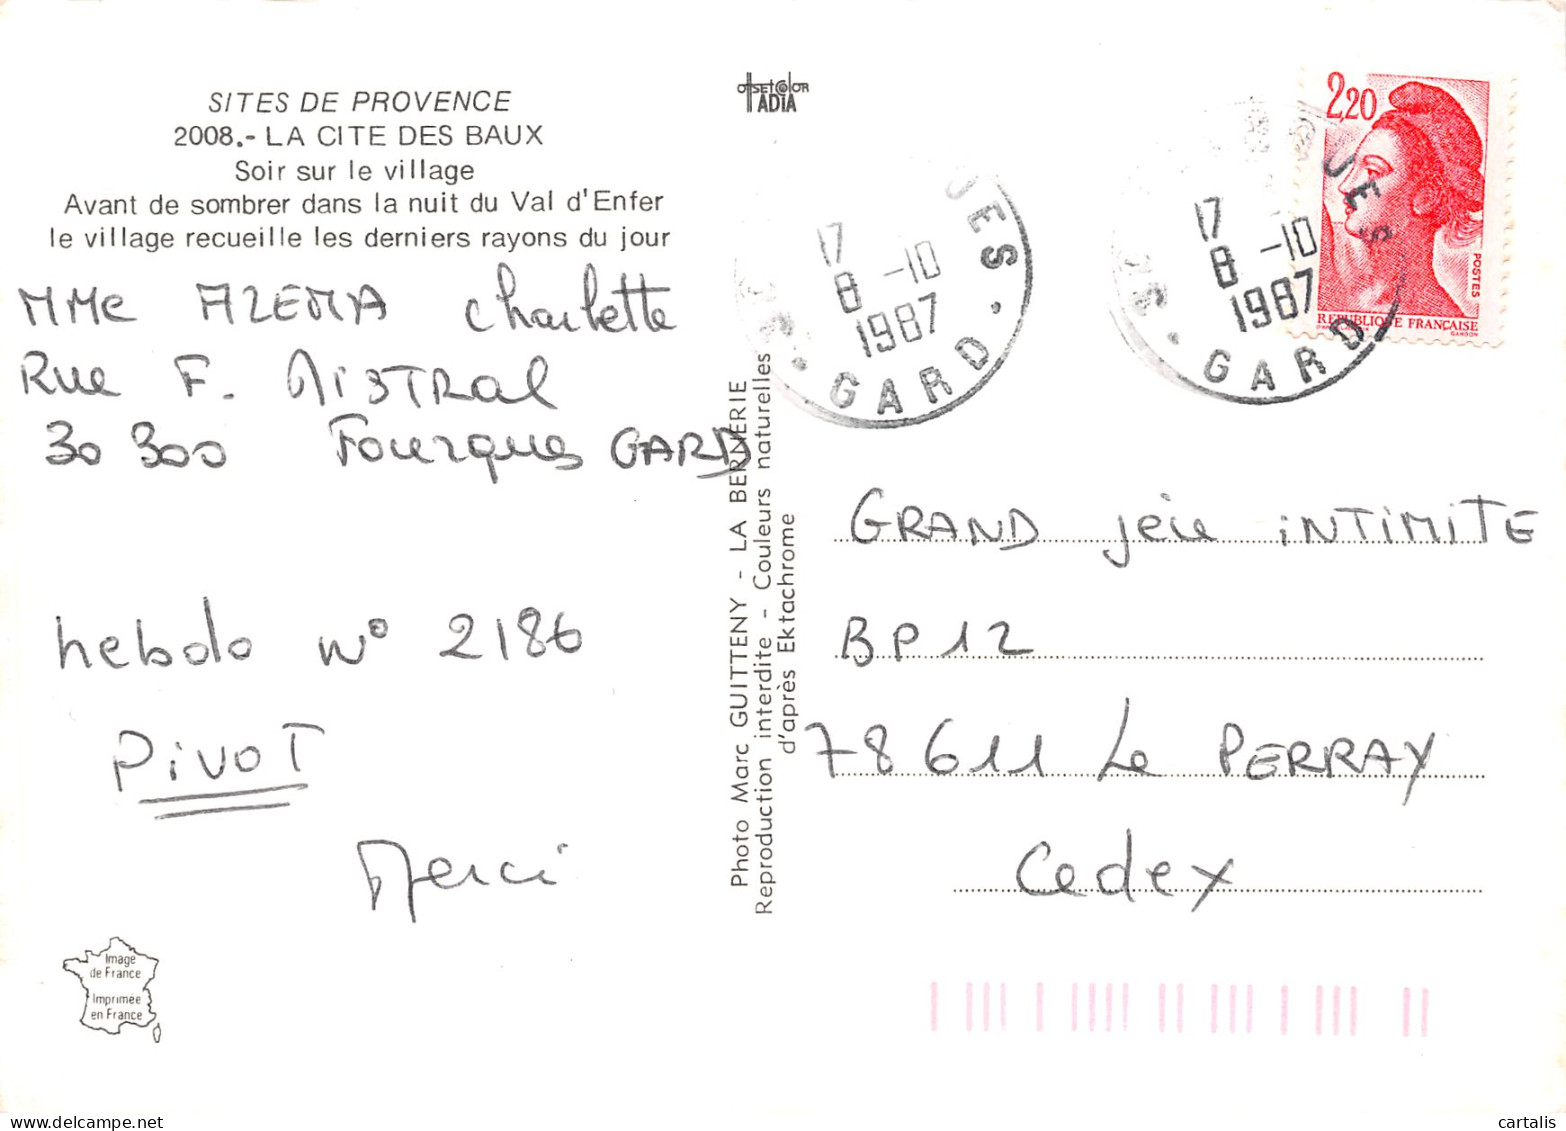 SITES DE PROVENCE
2008.- LA CITE DES BAUX
Soir sur le village
Avant de sombrer dans la nuit du Val d'Enfer
le village recueille les derniers rayons du jour
MMe AZEMA Charlette
Rue F. MISTRAL
30 300 Fourques GARD
hebdo N° 2186
PIVOT
Merci
Image
de France
Imprimée
en France
OffsetColor
ADIA
Photo Marc GUITTENY - LA BERNERIE
Reproduction interdite - Couleurs naturelles
d'après Ektachrome
UES
17
8 -10
1987
GARD
UES
17
8 -10
1987
GARD
2,20
POSTES
REPUBLIQUE FRANÇAISE
GANDON
GRAND jeu iNTiMiTE
BP12
78611 Le PERRAY
Cedex
cartalis